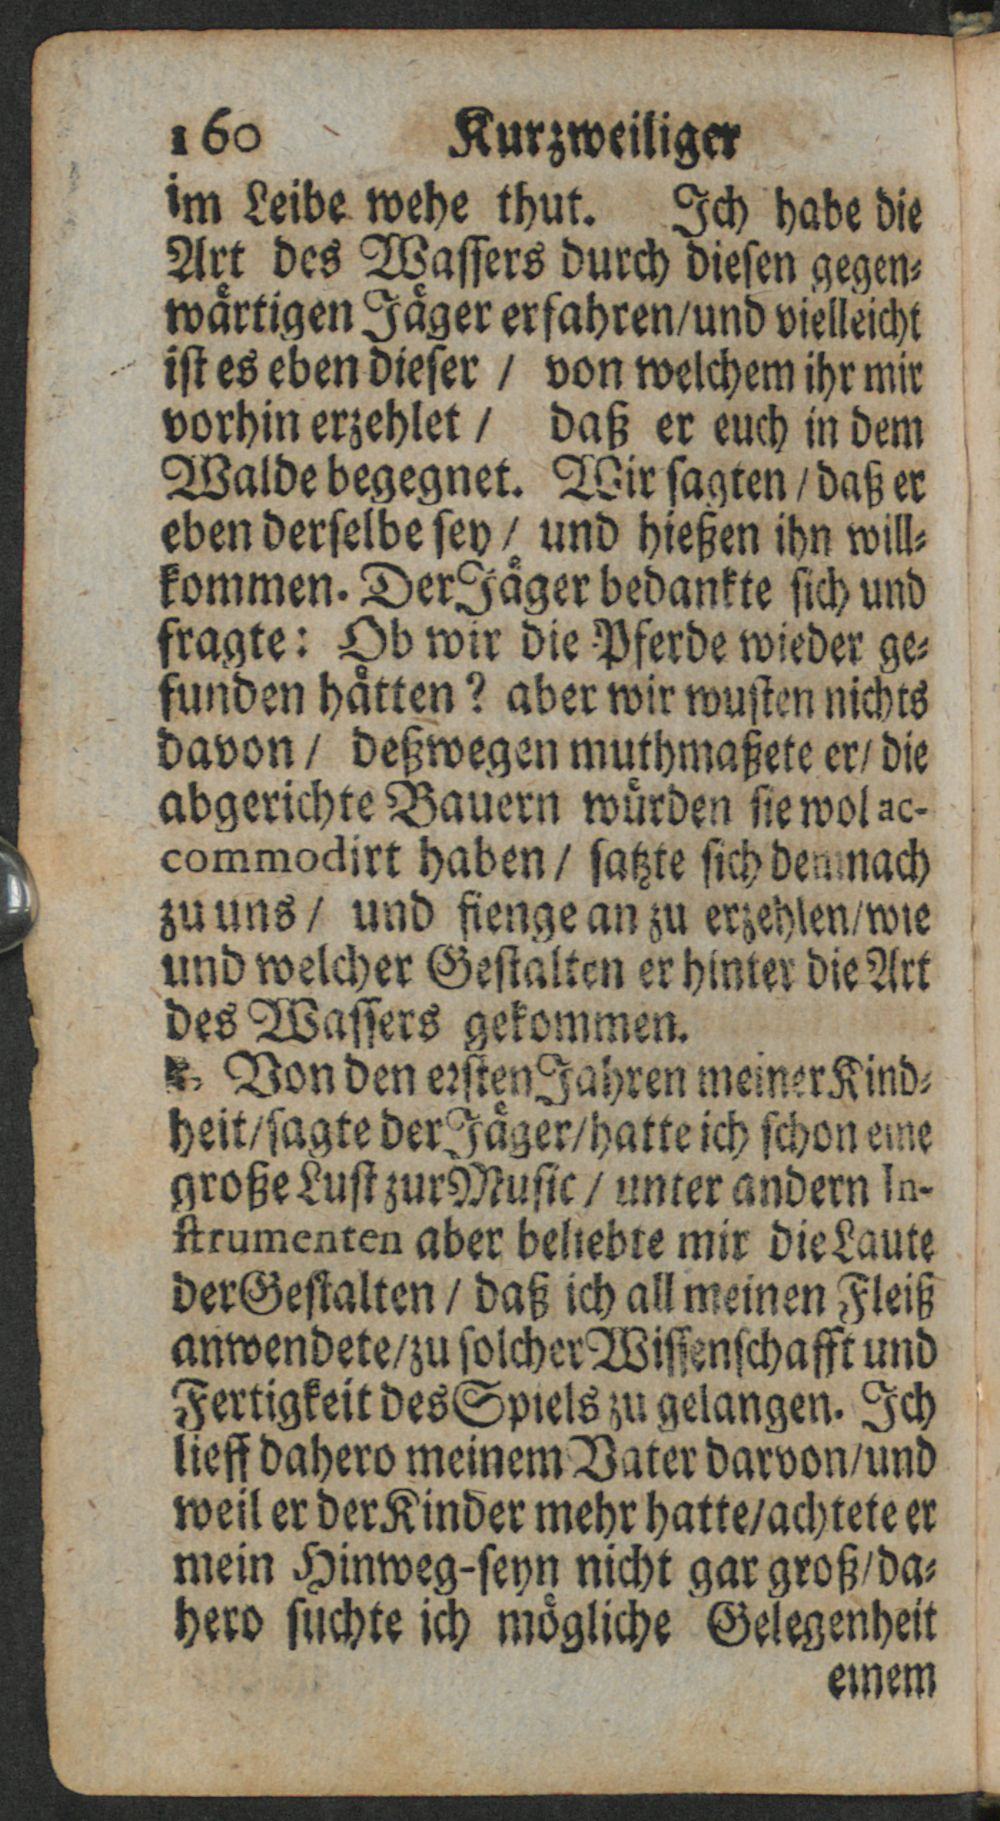 160 Kurzweiliger
im Leibe wehe thut. Ich habe die
Art des Waſſers durch dieſen gegen⸗
waͤrtigen Jaͤger erfahren/und vielleicht
iſt es eben dieſer / von welchem ihr mir
vorhin erzehlet / daß er euch in dem
Walde begegnet. Wir ſagten / daß er
eben derſelbe ſey / und hießen ihn will⸗
kommen. Der Jaͤger bedankte ſich und
fragte: Ob wir die Pferde wieder ge⸗
funden haͤtten? aber wir wuſten nichts
davon / deßwegen muthmaßete er/ die
abgerichte Bauern wuͤrden ſie wol ac-
commodirt haben / ſatzte ſich demnach
zu uns / und fienge an zu erzehlen/wie
und welcher Geſtalten er hinter die Art
des Waſſers gekommen.
Von den erſten Jahren meiner Kind⸗
heit/ſagte der Jaͤger/hatte ich ſchon eine
große Luſt zur Muſic / unter andern In-
ſtrumenten aber beliebte mir die Laute
der Geſtalten / daß ich all meinen Fleiß
anwendete/zu ſolcher Wiſſenſchafft und
Fertigkeit des Spiels zu gelangen. Ich
lieff dahero meinem Vater darvon/und
weil er der Kinder mehr hatte/achtete er
mein Hinweg-ſeyn nicht gar groß/da⸗
hero ſuchte ich moͤgliche Gelegenheit
einem